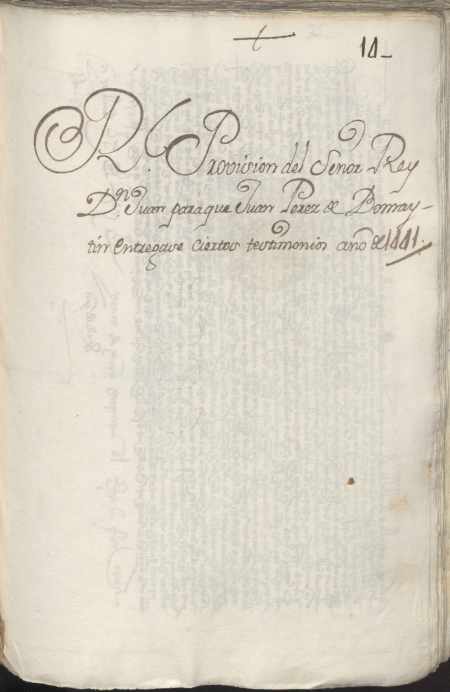 14_
R.l Provision del Señor Rey
Dn Juan para que Juan Perez de Bomay-
tin entregase ciertos testimonios año de 1441.